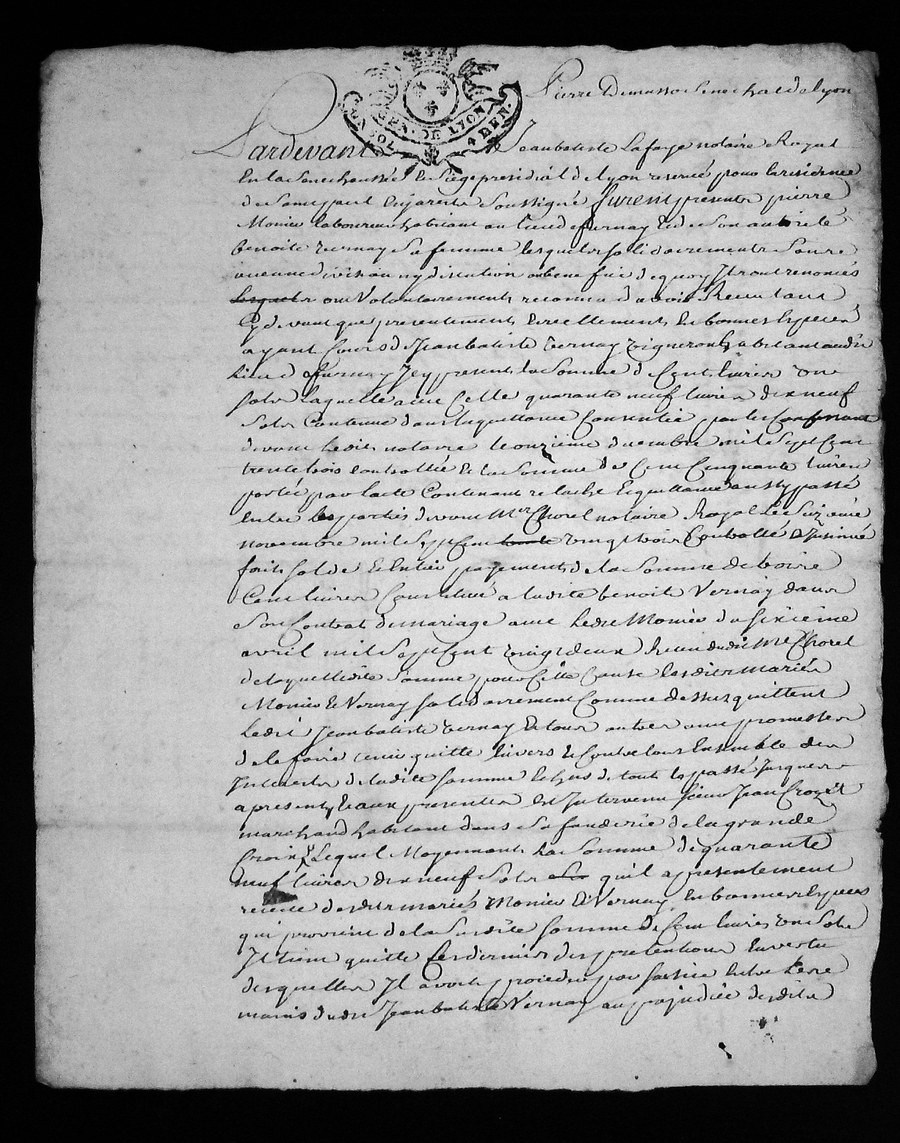 Pierre Dumas Senechal de Lyon
GEN. DE LYON
UN SOL 4 DEN.
Pardevant Jeanbatiste Lafaye notaire Royal
En la Senechaussée et Siege presidial de Lyon reservé pour la residence
de Saint paul en jarests Soussigné furent presents pierre
Monier laboureur habitant au lieu de furnay & de son autorité
benoite Vernay Sa femme lesquels solidairement Sans
aucune division ny discution au benefice de quoy Ils ont renoncés
lesquels ont Volontairement reconnu d'avoir Receu tant
Cy devant que presentement et reellement En bonnes Especes
ayant Cours de Jeanbatiste Vernay Vigneron habitant audit
Lieu de furnay Icy present la Somme de Cent livres un
sols laquelle avec Celle quarante neuf livres dix neuf
Sols Contenue dans la quittance Consentie par les
devant ledit notaire le onzieme decembre mil Sept Cent
trente trois Controllée Et la Somme de Cent Cinquante livres
portée par l'acte Contenant relache Et quittance aussy passé
Entre les parties devant Mre Chorel notaire Royal le Seizieme
novembre mil Sept Cent trente vingt trois Controllé & Insinué
fait solde Et Entier payement de la Somme de trois
Cent livres Constitué a ladite benoite Vernay dans
Son Contrat de mariage avec ledit Monier du Sixieme
avril mil Sept Cent vingt deux Receu dudit Me Chorel
de laquelle dite Somme pour Cette Cause lesdits mariés
Monier & Vernay solidairement Comme dessus quittent
ledit Jeanbatiste Vernay & tous autres avec promesse
de le faire tenir quitte Envers & Contre tous Ensemble des
Interests de ladite somme Echus de tout le passé Jusques
a present, Et aux presentes Est Intervenu sieur Jean Crozet
marchand habitant dans Sa fonderie de la grande
Croix, Lequel Moyennant la Somme de quarante
neuf livres dix neuf Sols qu'il a presentement
receue desdits mariés Monier & Vernay En bonnes Especes
qui provient de la Susdite Somme de Cent livres un Sols
Il tient quitte les derniers des pretentions En vertu
desquelles Il avoit procedé par Saisie Entre les
mains dudit Jeanbatiste Vernay au prejudice desdits